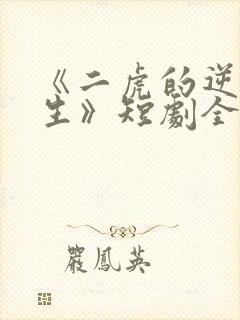 《二虎的逆
生》短劇全
嚴鳳英